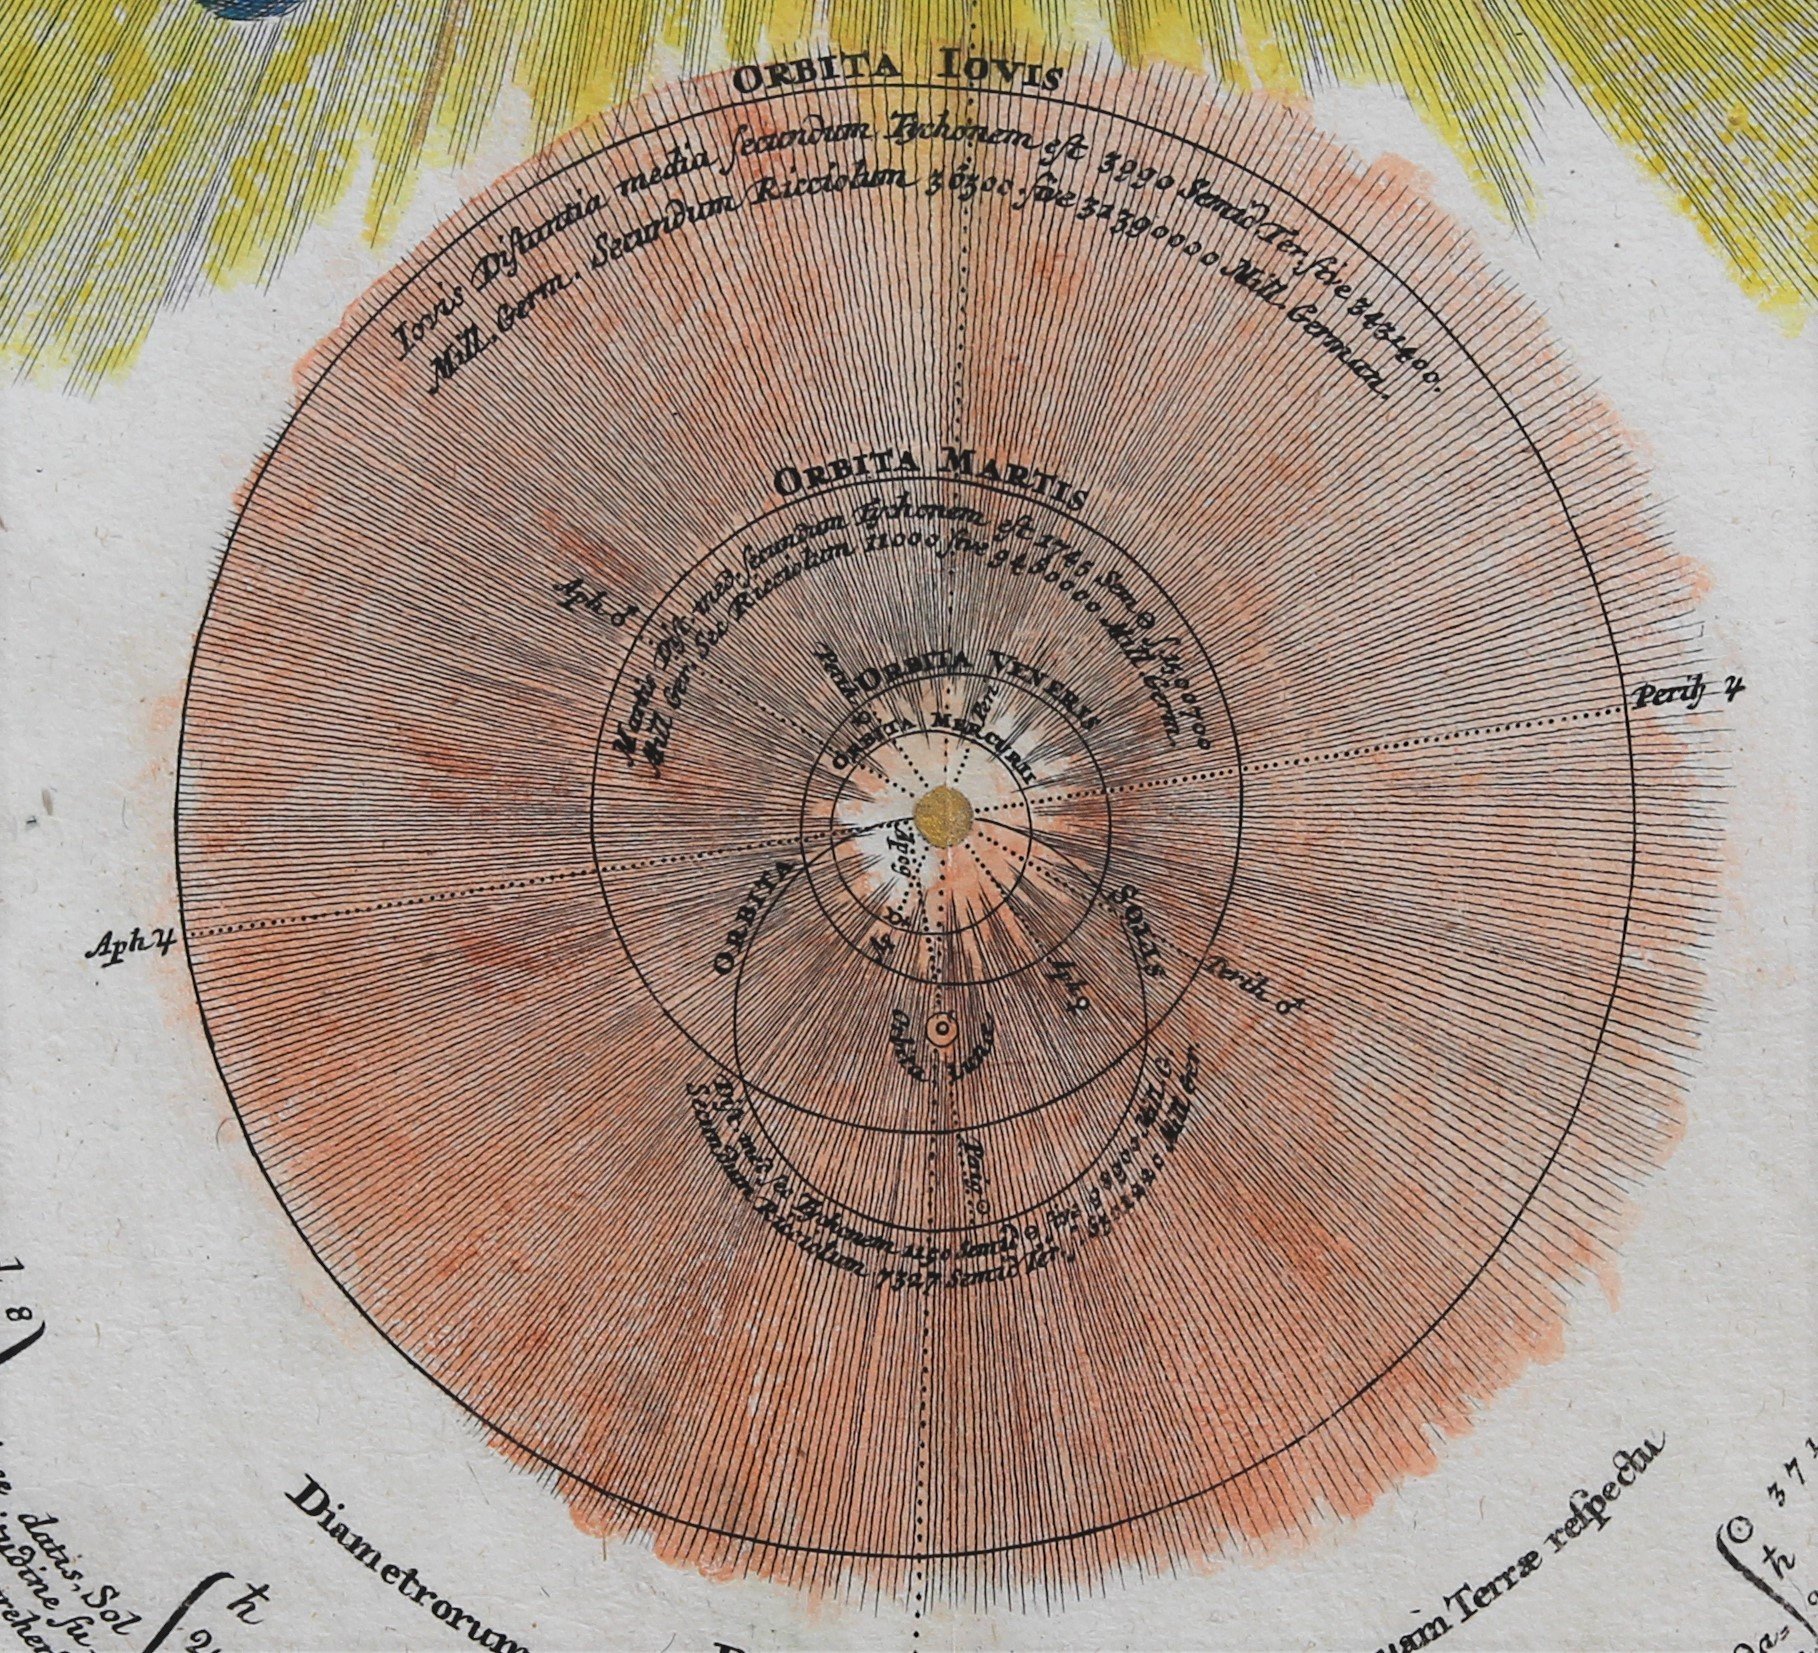 ORBITA IOVIS
Iovis Diſtantia media ſecundum Tychonem eſt 3990 Semid Ter. ſive 3431400.
Mill. Germ. Secundum Ricciolum 36300. ſive 32390000 Mill. German.
ORBITA MARTIS
Martis Diſt. med. ſecundum Tychonem eſt 1745 Sem ⊖ ſ 1500700
Mill Ger. Sec Ricciolum 11000 ſive Mill Germ.
Aph ♂
ORBITA VENERIS
ORBITA MERCURII
Perih ♃
Aph ♃
ORBITA SOLIS
Aph ♀
Perih ♂
Orbita Lunæ
Perig. ☉
Diſt. med. ſec Tychonem 1150 Semid ⊖
Secundum Ricciolum 7327 Semid Ter. Mill Ger.
Diametrorum
uam Terræ reſpectu
☉ 371
ħ
ħ
8
datis, Sol
udine ſu